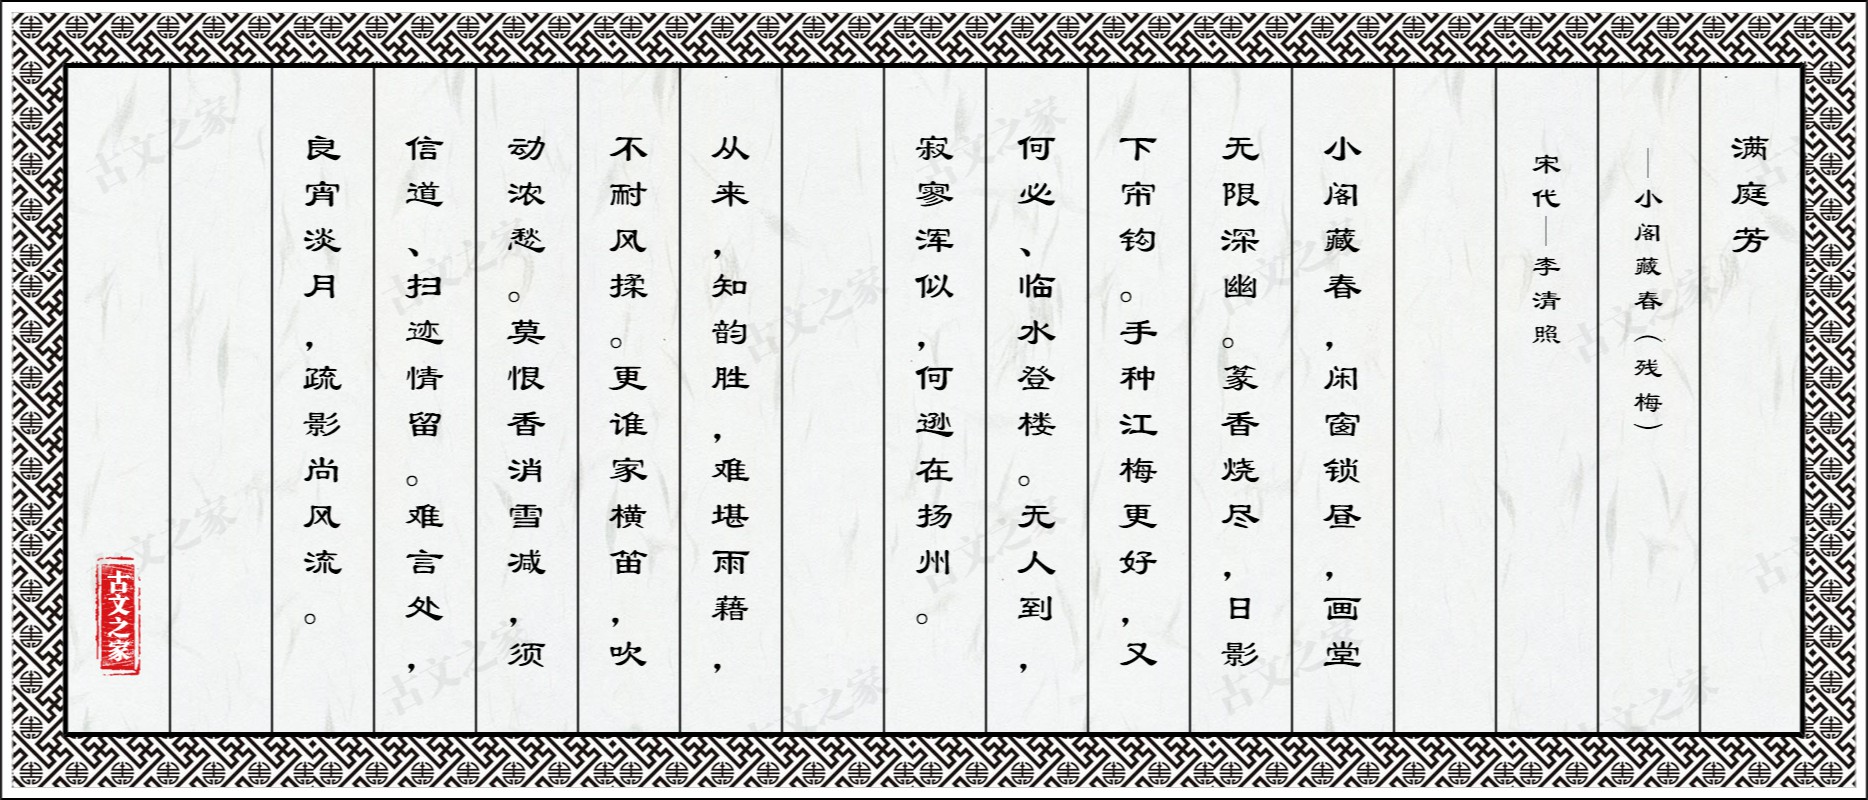 满庭芳
—小阁藏春（残梅）
宋代—李清照
小阁藏春，闲窗锁昼，画堂
无限深幽。篆香烧尽，日影
下帘钩。手种江梅更好，又
何必、临水登楼。无人到，
寂寥浑似，何逊在扬州。
从来，知韵胜，难堪雨藉，
不耐风揉。更谁家横笛，吹
动浓愁。莫恨香消雪减，须
信道、扫迹情留。难言处，
良宵淡月，疏影尚风流。
古文之家